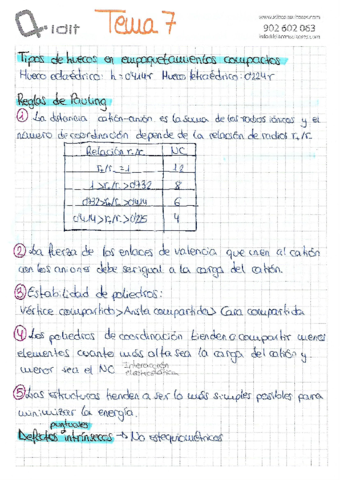 Qridit Tema 7
902 602 063
Tipos de huecos en empaquetamientos compactos
Hueco octaédrico: h=0,414r Hueco tetraédrico: 0,224r
Reglas de Pauling
① La distancia catión-anión es la suma de los radios iónicos y el
número de coordinación depende de la relación de radios r₊/r₋
Relación r₊/r₋ NC
r₊/r₋ = 1 12
1 > r₊/r₋ > 0,732 8
0,732 > r₊/r₋ > 0,414 6
0,414 > r₊/r₋ > 0,225 4
② La fuerza de los enlaces de valencia que unen al catión
con los aniones debe ser igual a la carga del catión.
③ Estabilidad de poliedros:
Vértice compartido > Arista compartida > Cara compartida
④ Los poliedros de coordinación tienden a compartir menos
elementos, cuanto más alta sea la carga del catión y
menor sea el NC Interacción electrostática
⑤ Las estructuras tienden a ser lo más simples posibles para
minimizar la energía.
puntuales
Defectos intrínsecos → No estequiométricos